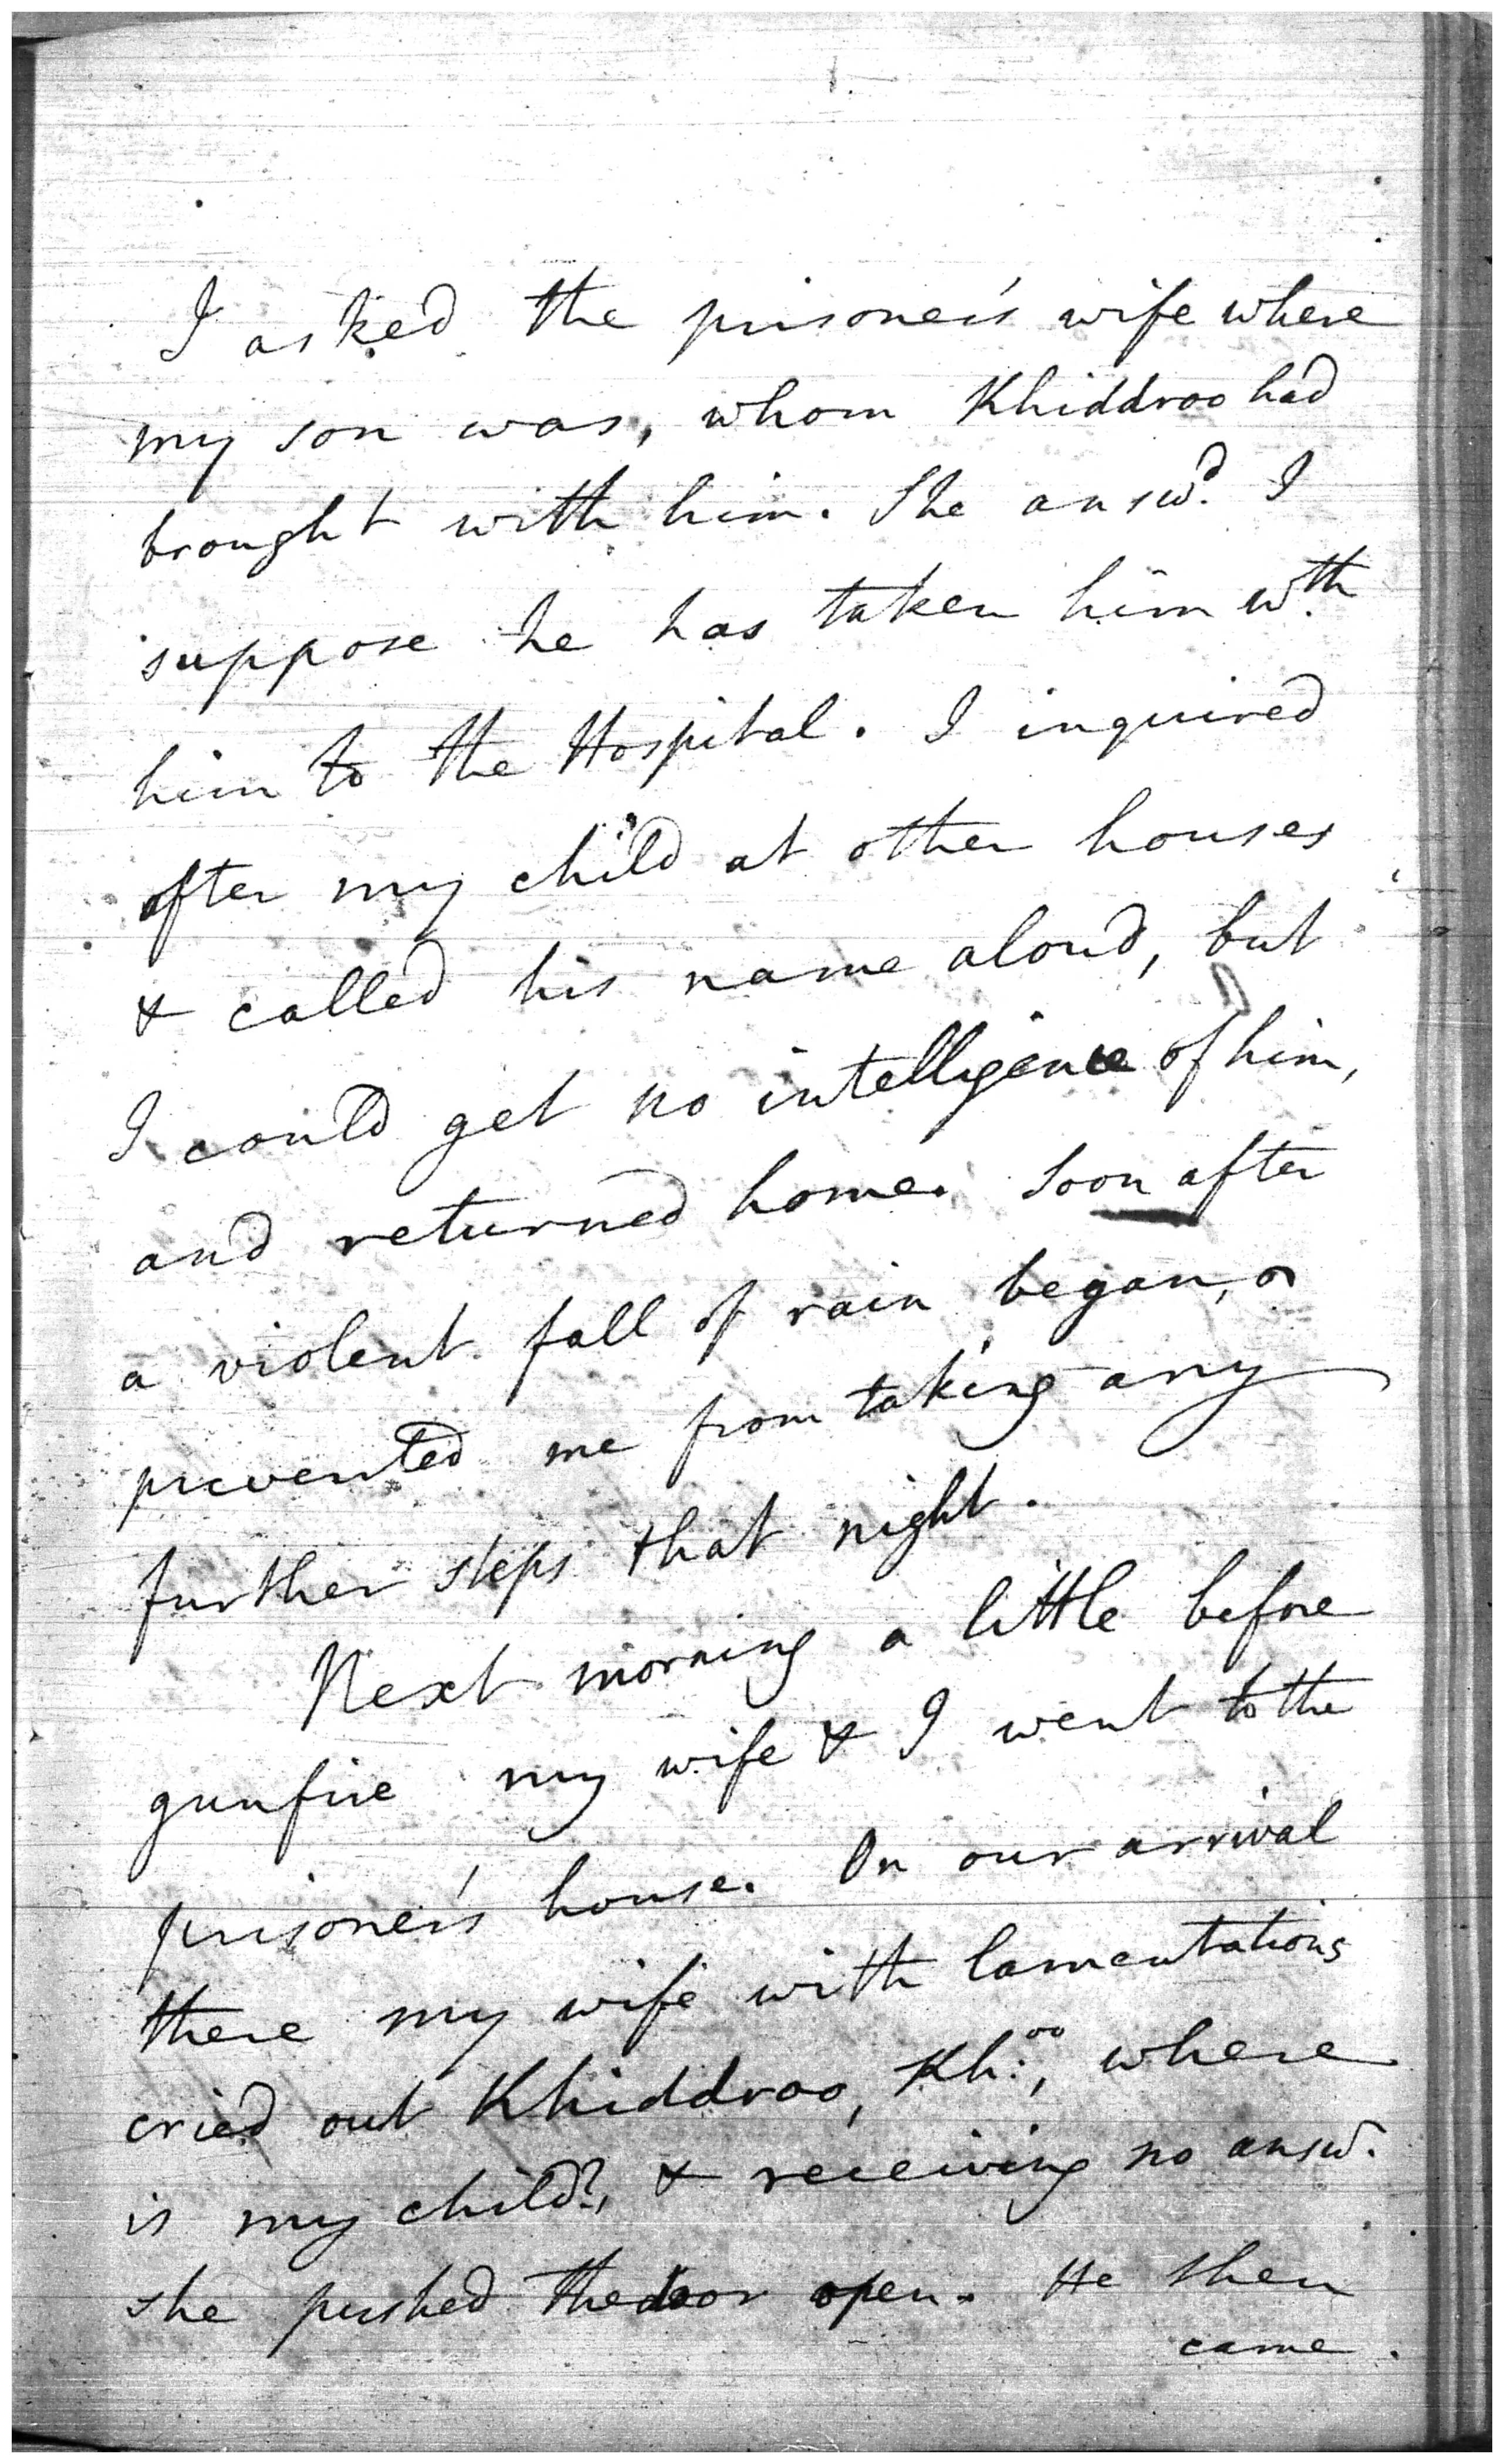 I asked the prisoner's wife where
my son was, whom Khiddroo had
brought with him. She answ.d I
suppose he has taken him w.th
him to the Hospital. I inquired
after my child at other houses
& called his name aloud, but
I could get no intelligence of him,
and returned home. Soon after
a violent fall of rain began, &
prevented me from taking any
further steps that night.
Next morning a little before
gunfire my wife & I went to the
prisoner's house. On our arrival
there my wife with lamentations
cried out Khiddroo, Kh:oo, where
is my child?, & receiving no answ.
she pushed the door open. He then
came